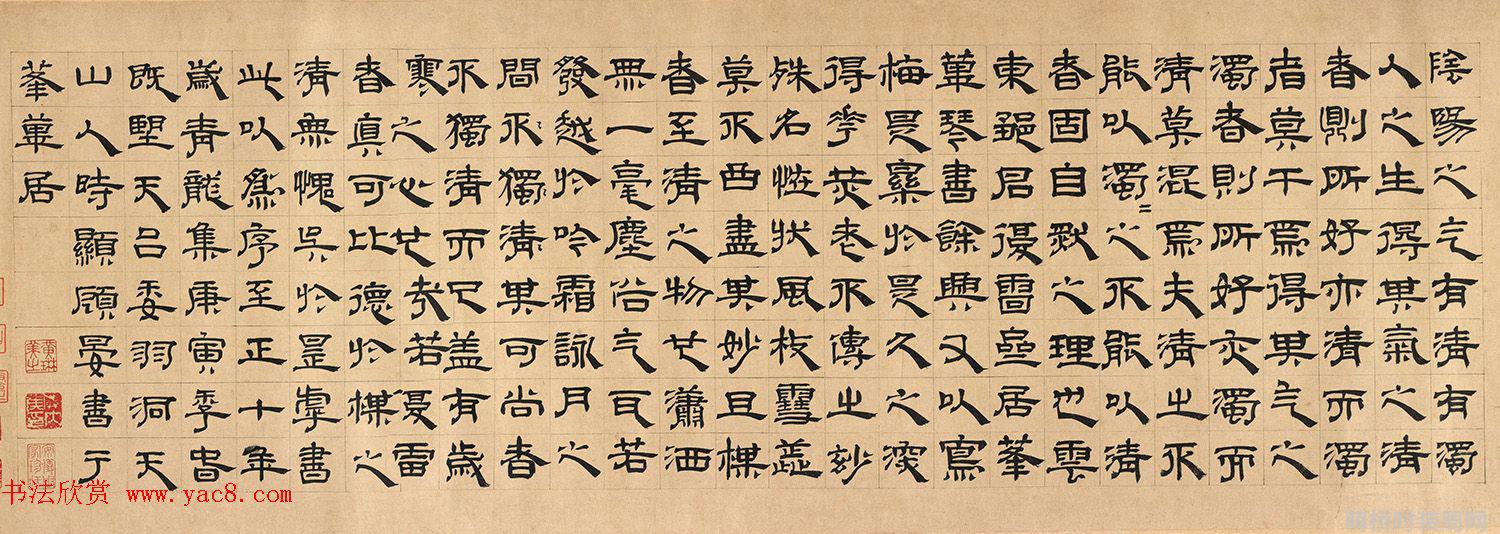 陰陽之气有清有濁
人之生得其氣之清
者則所好亦清而濁
者莫干焉得其气之
濁者則所好亦濁而
清莫混焉夫清之不
能以濁=之不能以清
者固自然之理也雲
東鄒君復雷齋居蓬
蓽琴書餘興又以寫
梅是寓於是久之深
得華光老不傳之妙
殊名性狀風枝雪蕋
莫不曲盡其妙且楳
者至清之物也瀟洒
無一毫塵俗气瓦若
發越於吟霜詠月之
間不獨清其可尚者
不獨清而已盖有歲
寒之心也哉若復雷
者真可比德於楳之
清無愧矣於是虖書
此以為序至正十年
歲青龍集庚寅季春
既朢天台委羽洞天
山人時顯顧晏書于
蓬蓽居
书法欣赏 www.yac8.com